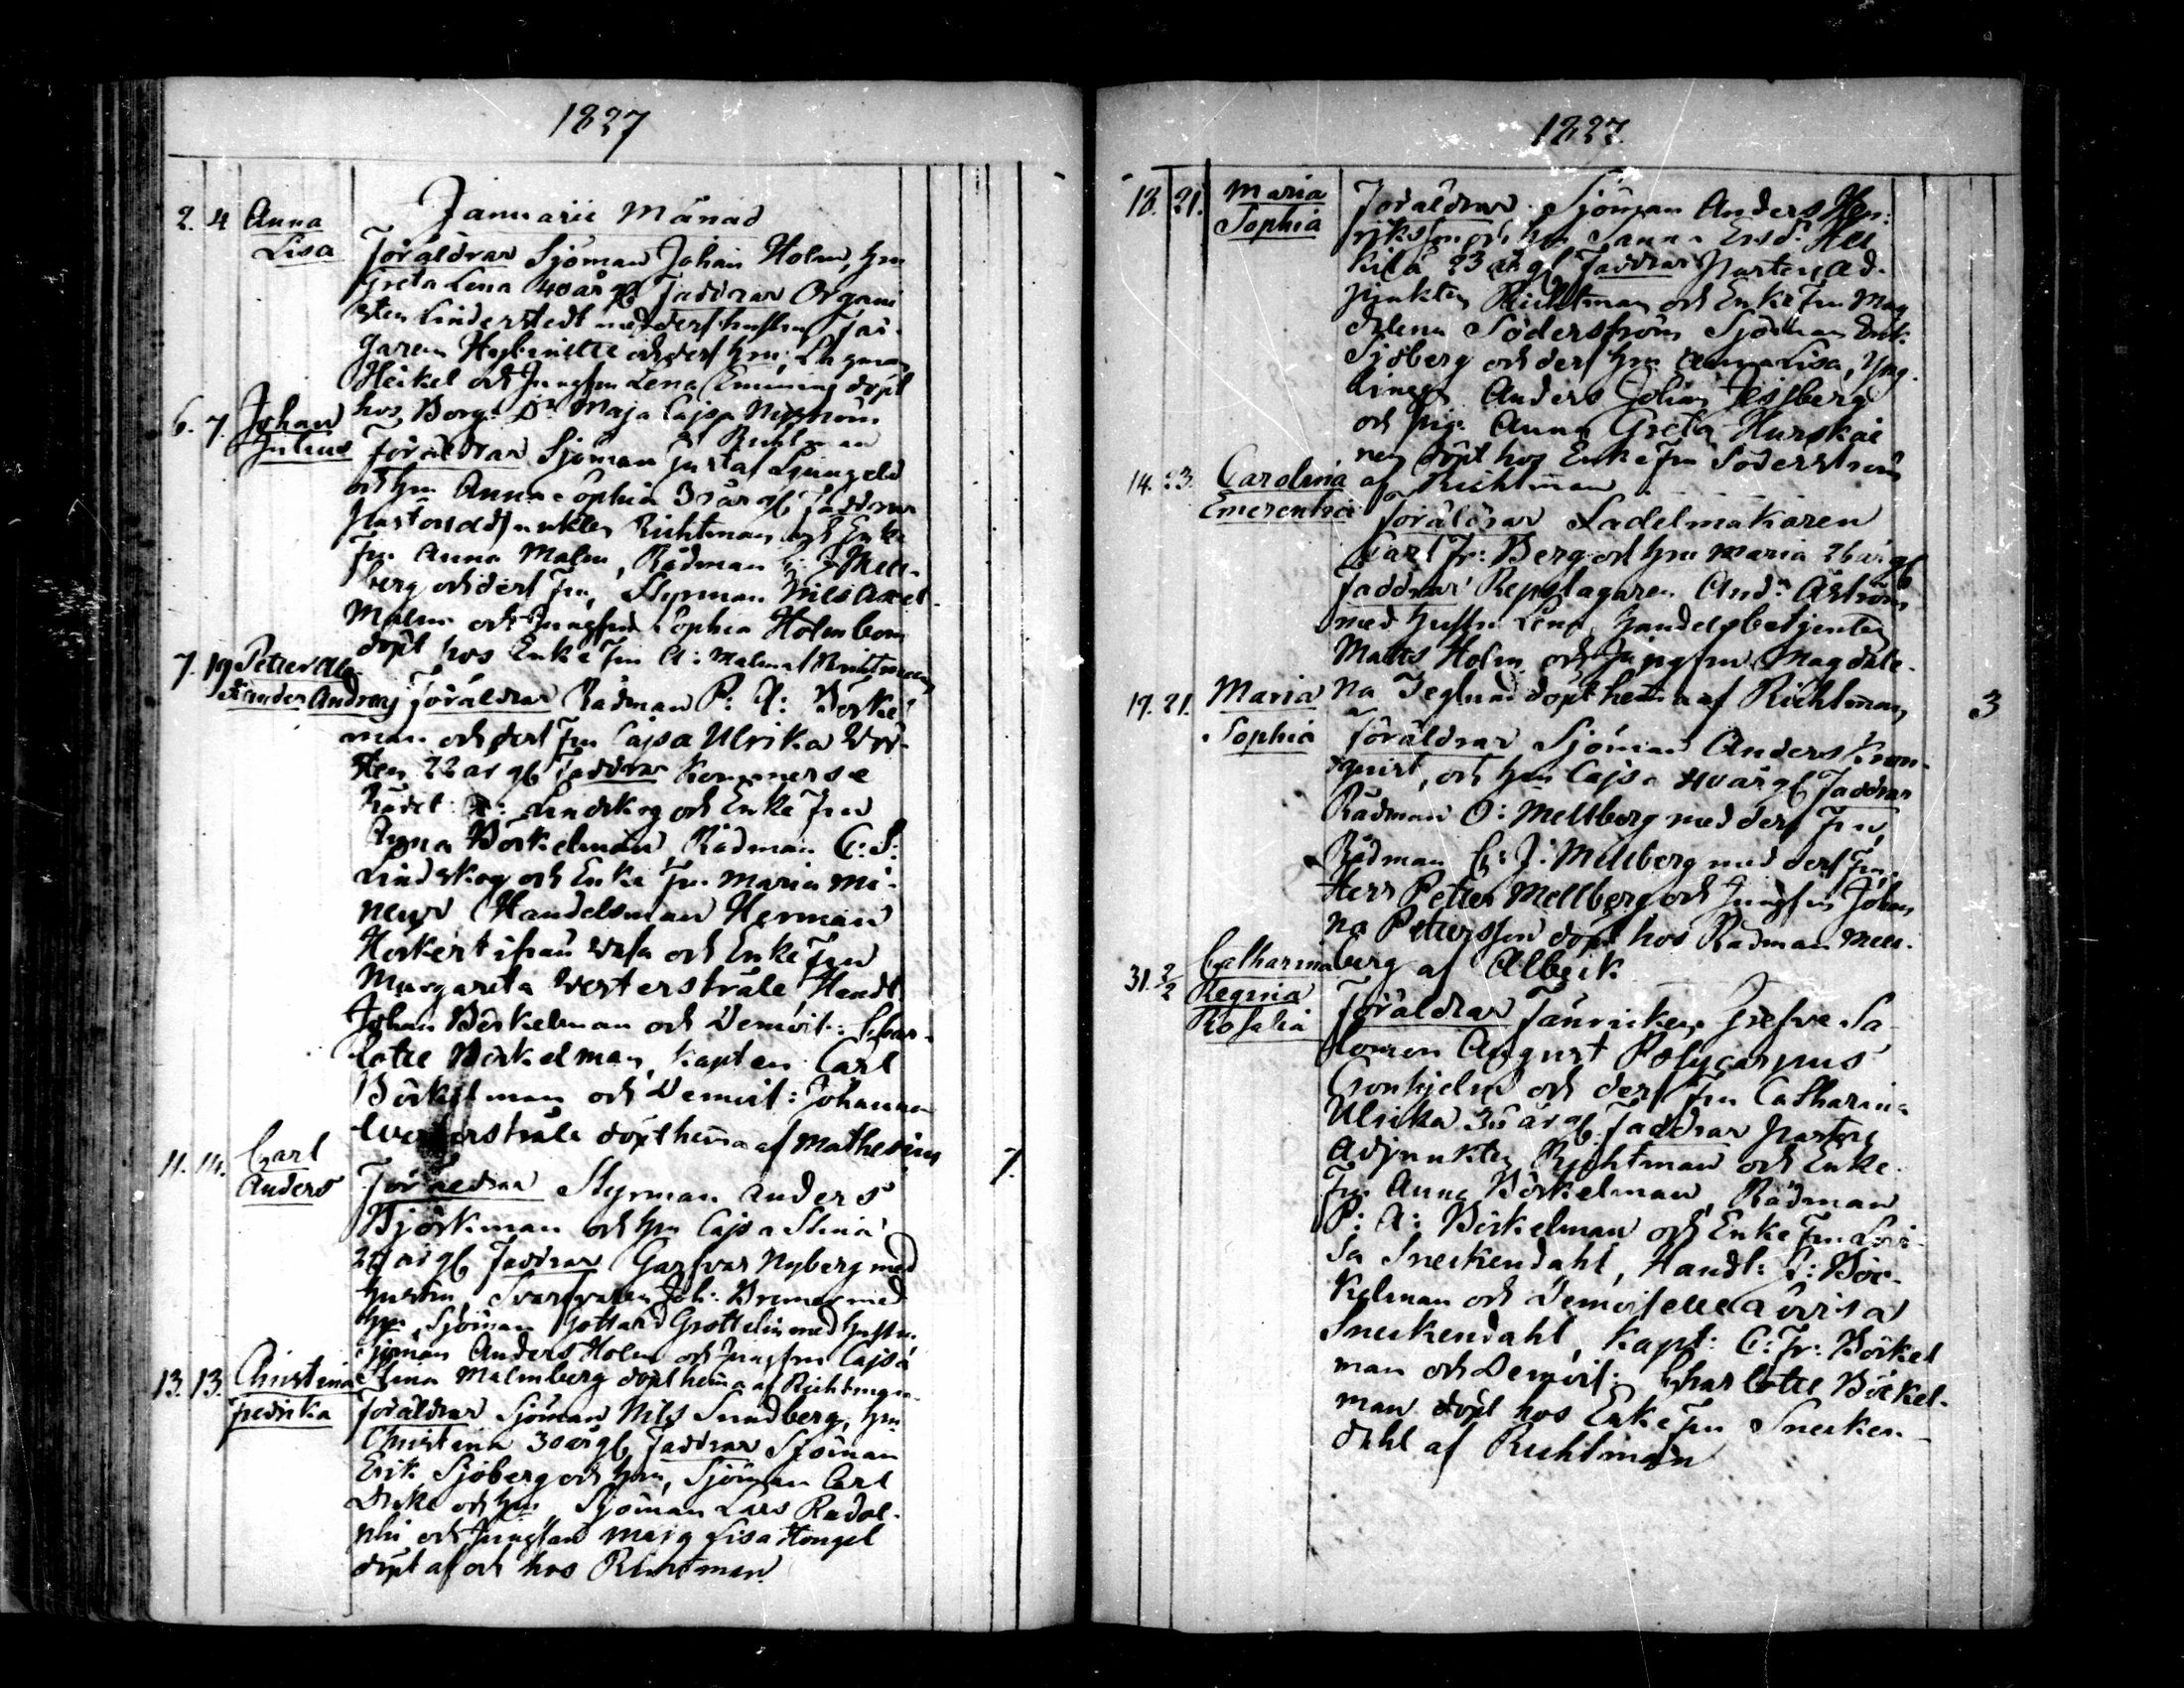 1827
Januarii Månad
2. 4 Anna Lisa
Föräldrar Sjöman Johan Holm, hm
Greta Lena 40 år gl Faddrar Organi
sten Linderstedt med dess hustru, Fär-
garen Hybinette och dess hm,
Heikel och Jungfru Lena döpt
hos Borg: Maja Cajsa
Richtman
6. 7. Johan Julius
Föräldrar Sjöman Gustaf Ljungqvist
och hm Anna Sophia 30 år gl Faddrar
Pastorsadjunkten Richtman och Enke
Fru Anna Malm, Rådman Mell-
berg och dess Fru, Styrman Nils Axel
Malm och Jungfru Sophia Holmbom
döpt hos Enke Fru A: Malm af Richtman
7. 19 Petter Alexander Andreas
Föräldrar Rådman P: A: Börkel
man och dess Fru Cajsa Ulrika
22 år gl Faddrar Kommerse
Rådet Lindskog och Enke Fru
Anna Börkelman Rådman C: S:
Lindskog och Enke Fru Maria
Handelsman Herman
ifrån Wasa och Enke Fru
Margareta Westerstråle Handl:
Johan Börkelman och Demois: Char-
lotte Börkelman, Kapten Carl
Börkelman och Demois: Johanna
Westerstråle döpt hema af Mathesius
11. 14. Carl Anders 7.
Föräldrar Styrman Anders
Björkman och hm Cajsa Stina
år gl Faddrar Garfvar Nyberg med
hustru, Svarfvaren Joh: Bremer med
hm, Sjöman Gottard Grottelin med hustru
Sjöman Anders Holm och Jungfru Cajsa
Stina Malmberg döpt hema af Richtman
13. 13. Christina Fredrika
Föräldrar Sjöman Nils Sundberg, hm
Christina 30 år gl, Faddrar Sjöman
Erik Sjöberg och hm, Sjöman Carl
och hm Sjöman Lars Rudol-
phi och Jungfrun Maja Lisa Hongel
döpt af och hos Richtman
1827.
18. 21. Maria Sophia
Föräldrar Sjöman Anders Hen-
riksson och hm Sanna
23 år gl Faddrar Pastors Ad-
junkten Richtman och Enke Fru Mag
dalena Söderström Sjöman Erik
Sjöberg och dess hm Anna Lisa, Yng-
lingen Anders Johan
och pig: Anna Greta Hurskai
nen döpt hos Enke Fru Söderström
af Richtman
14. 23. Carolina Emerentia
föräldrar Sadelmakaren
Carl Fr: Berg och hm Maria 26 år gl
Faddrar Repslagaren And: Åström
med hustru Lena, handelsbetjenten
Matts Holm och Jungfru Magdale-
na döpt hema af Richtman
19. 21. Maria Sophia 3
föräldrar Sjöman Anders Kron-
qvist, och hm Cajsa 40 år gl Faddrar
Rådman O: Mellberg med dess Fru,
Rådman C: J: Mellberg med dess Fru,
Herr Petter Mellberg och Jungfru Johan
na Pettersson döpt hos Rådman Mell-
berg af Albeik
31. 2/2 Catharina Regina Rosalia
Föräldrar Fänriken, Grefve Sa
lomon August Polycarpus
Cronhjelm och dess Fru Catharina
Ulrika 36 år gl. Faddrar Pastors
Adjunkten Richtman och Enke
Fru Anna Börkelman, Rådman
P: A: Börkelman och Enke Fru Lovi-
sa Sneckendahl, Handl: J: Bör-
kelman och Demoiselle Lovisa
Sneckendahl, Kapt: C: Fr: Börkel
man och Demois: Charlotte Börkel-
man döpt hos Enke Fru Snecken-
dahl af Richtman